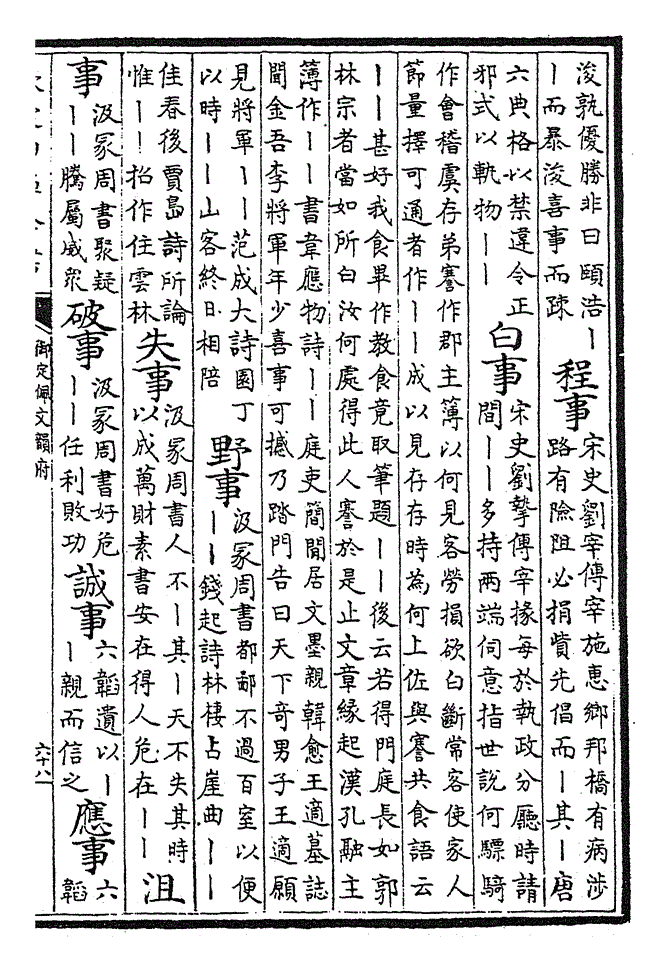 浚孰優勝非曰頤浩丨
丨而暴浚喜事而疎
程事
宋史劉宰傳宰施惠鄉邦橋有病涉
路有險阻必捐貲先倡而丨其丨唐
六典格以禁違令正
邪式以軌物丨丨
白事
宋史劉摯傳宰掾每於執政分廳時請
間丨丨多持兩端伺意指世說何驃騎
作會稽虞存弟謇作郡主簿以何見客勞損欲白斷常客使家人
節量擇可通者作丨丨成以見存存時為何上佐與謇共食語云
丨丨甚好我食畢作教食竟取筆題丨丨後云若得門庭長如郭
林宗者當如所白汝何處得此人謇於是止文章緣起漢孔融主
簿作丨丨書韋應物詩丨丨庭吏簡閒居文墨親韓愈王適墓誌
聞金吾李將軍年少喜事可撼乃踏門告曰天下奇男子王適願
見將軍丨丨范成大詩園丁
以時丨丨山客終日相陪
野事
汲冢周書都鄙不過百室以便
丨丨錢起詩林棲占崖曲丨丨
佳春後賈島詩所論
惟丨丨招作住雲林
失事
汲冢周書人不丨其丨天不失其時
以成萬財素書安在得人危在丨丨
沮
事
汲冢周書聚疑
丨丨騰屬威衆
破事
汲冢周書好危
丨丨任利敗功
誠事
六韜遺以丨
丨親而信之
應事
六
韜
御定佩文韻府
六十八